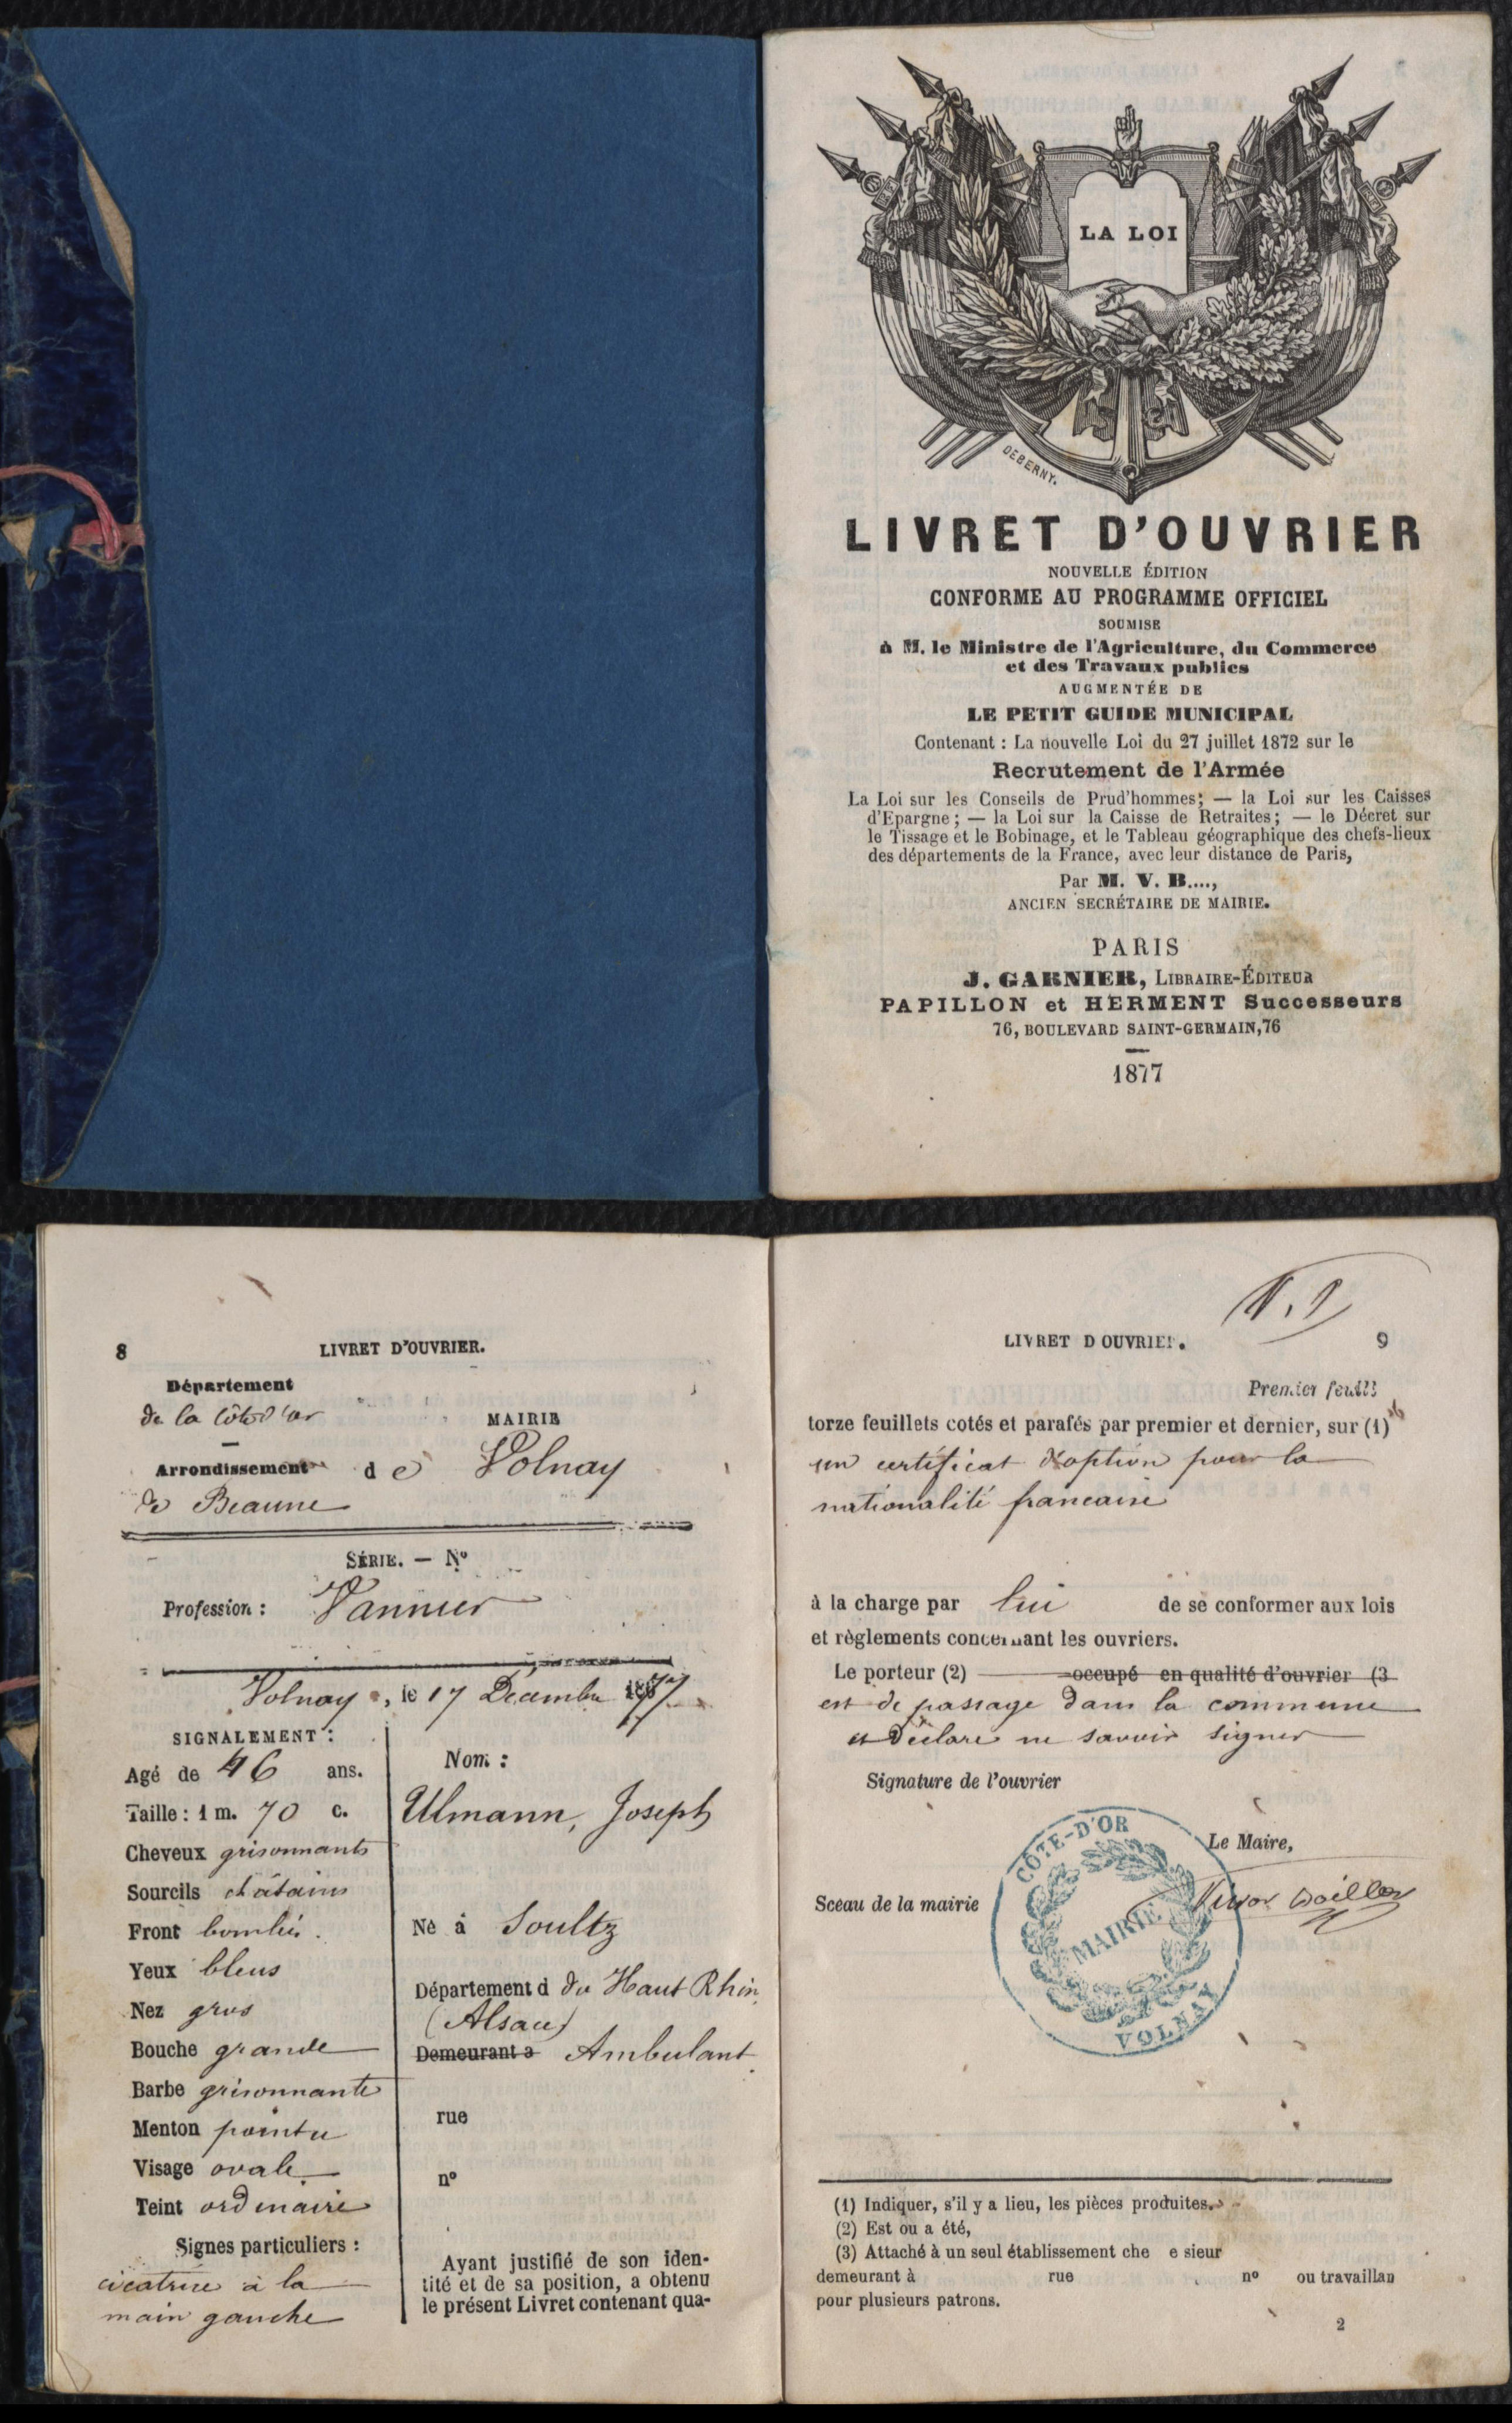 LA LOI
DEBERNY.
LIVRET D'OUVRIER
NOUVELLE ÉDITION
CONFORME AU PROGRAMME OFFICIEL
SOUMISE
à M. le Ministre de l'Agriculture, du Commerce
et des Travaux publics
AUGMENTÉE DE
LE PETIT GUIDE MUNICIPAL
Contenant : La nouvelle Loi du 27 juillet 1872 sur le
Recrutement de l'Armée
La Loi sur les Conseils de Prud'hommes; — la Loi sur les Caisses
d'Epargne; — la Loi sur la Caisse de Retraites; — le Décret sur
le Tissage et le Bobinage, et le Tableau géographique des chefs-lieux
des départements de la France, avec leur distance de Paris,
Par M. V. B....,
ANCIEN SECRÉTAIRE DE MAIRIE.
PARIS
J. GARNIER, LIBRAIRE-ÉDITEUR
PAPILLON et HERMENT Successeurs
76, BOULEVARD SAINT-GERMAIN, 76
1877
8 LIVRET D'OUVRIER.
Département
de la Côte d'or
MAIRIE
Arrondissement
de Volnay
de Beaune
SÉRIE. — No
Profession : Vannier
Volnay, le 17 Décembre 1877
SIGNALEMENT :
Agé de 46 ans.
Taille : 1 m. 70 c.
Cheveux grisonnants
Sourcils châtains
Front bombé.
Yeux bleus
Nez gros
Bouche grande
Barbe grisonnante
Menton pointu
Visage ovale
Teint ordinaire
Signes particuliers :
cicatrice à la
main gauche
Nom :
Ulmann, Joseph
Né à Soultz
Département d du Haut Rhin
(Alsace)
Demeurant à Ambulant.
rue
no
Ayant justifié de son iden-
tité et de sa position, a obtenu
le présent Livret contenant qua-
LIVRET D OUVRIER. 9
Premier feuill
torze feuillets cotés et parafés par premier et dernier, sur (1)
un certificat d'option pour la
nationalité francaise
à la charge par lui de se conformer aux lois
et règlements concernant les ouvriers.
Le porteur (2) occupé en qualité d'ouvrier (3
est de passage dans la commune
et déclare ne savoir signer
Signature de l'ouvrier
Le Maire,
Sceau de la mairie
CÔTE-D'OR
MAIRIE
VOLNAY
(1) Indiquer, s'il y a lieu, les pièces produites.
(2) Est ou a été,
(3) Attaché à un seul établissement che e sieur
demeurant à rue no ou travaillan
pour plusieurs patrons.
2